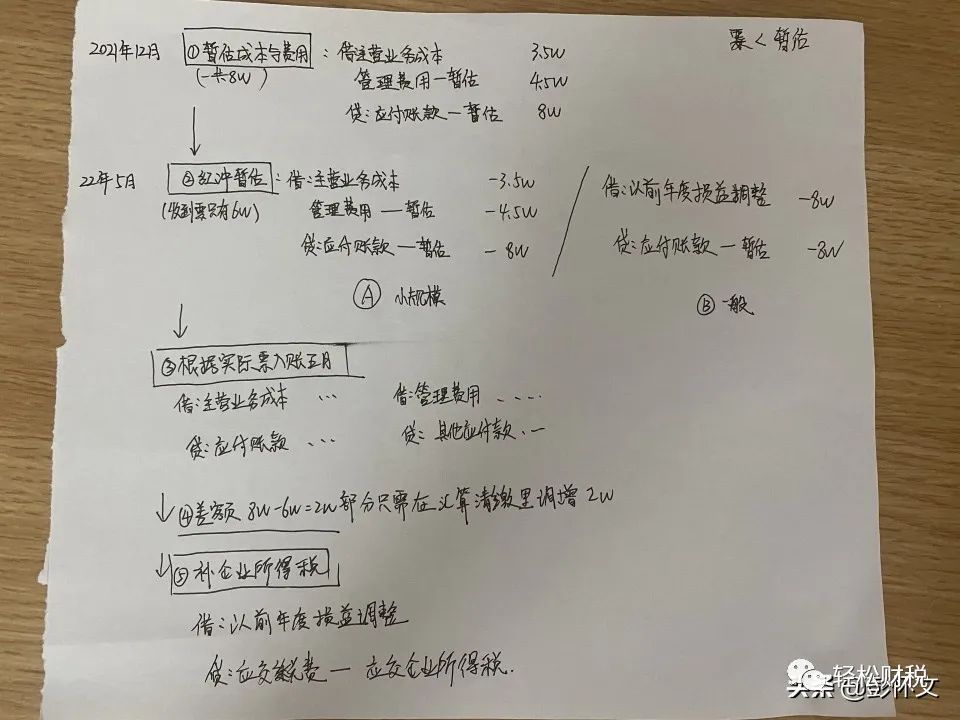 票<暂估
2021年12月 ①暂估成本与费用：借主营业务成本 3.5w
(一共8w) 管理费用一暂估 4.5w
贷:应付账款一暂估 8w
22年5月 ②红冲暂估：借:主营业务成本 -3.5w
(收到票只有6w) 管理费用 — 暂估 -4.5w
贷:应付账款 — 暂估 -8w
借:以前年度损益调整 -8w
贷:应付账款 — 暂估 -8w
Ⓐ 小规模
Ⓑ 一般
③根据实际票入账五月
借:主营业务成本 … 借:管理费用 ....
贷:应付账款 … 贷: 其他应付款.一
④差额 8w-6w=2w部分只需在汇算清缴里调增2w
⑤补企业所得税
借:以前年度损益调整
贷:应交税费 — 应交企业所得税.
轻松财税
头条@彭怀文